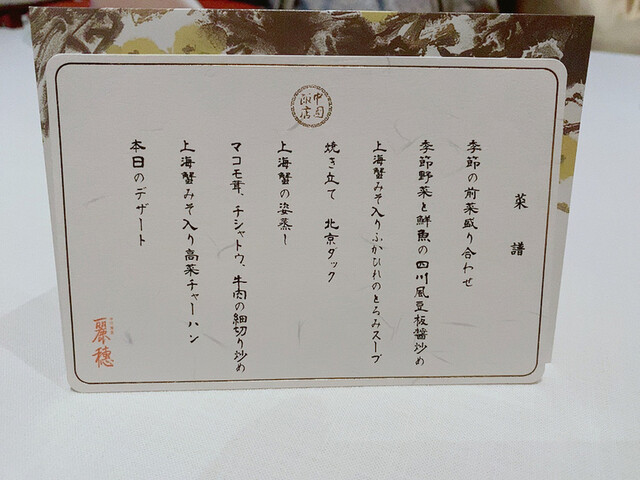 中国
飯店
菜譜
季節の前菜盛り合わせ
季節野菜と鮮魚の四川風豆板醤炒め
上海蟹みそ入りふかひれのとろみスープ
焼き立て 北京ダック
上海蟹の姿蒸し
マコモ茸、チシャトウ、牛肉の細切り炒め
上海蟹みそ入り高菜チャーハン
本日のデザート
麗穂